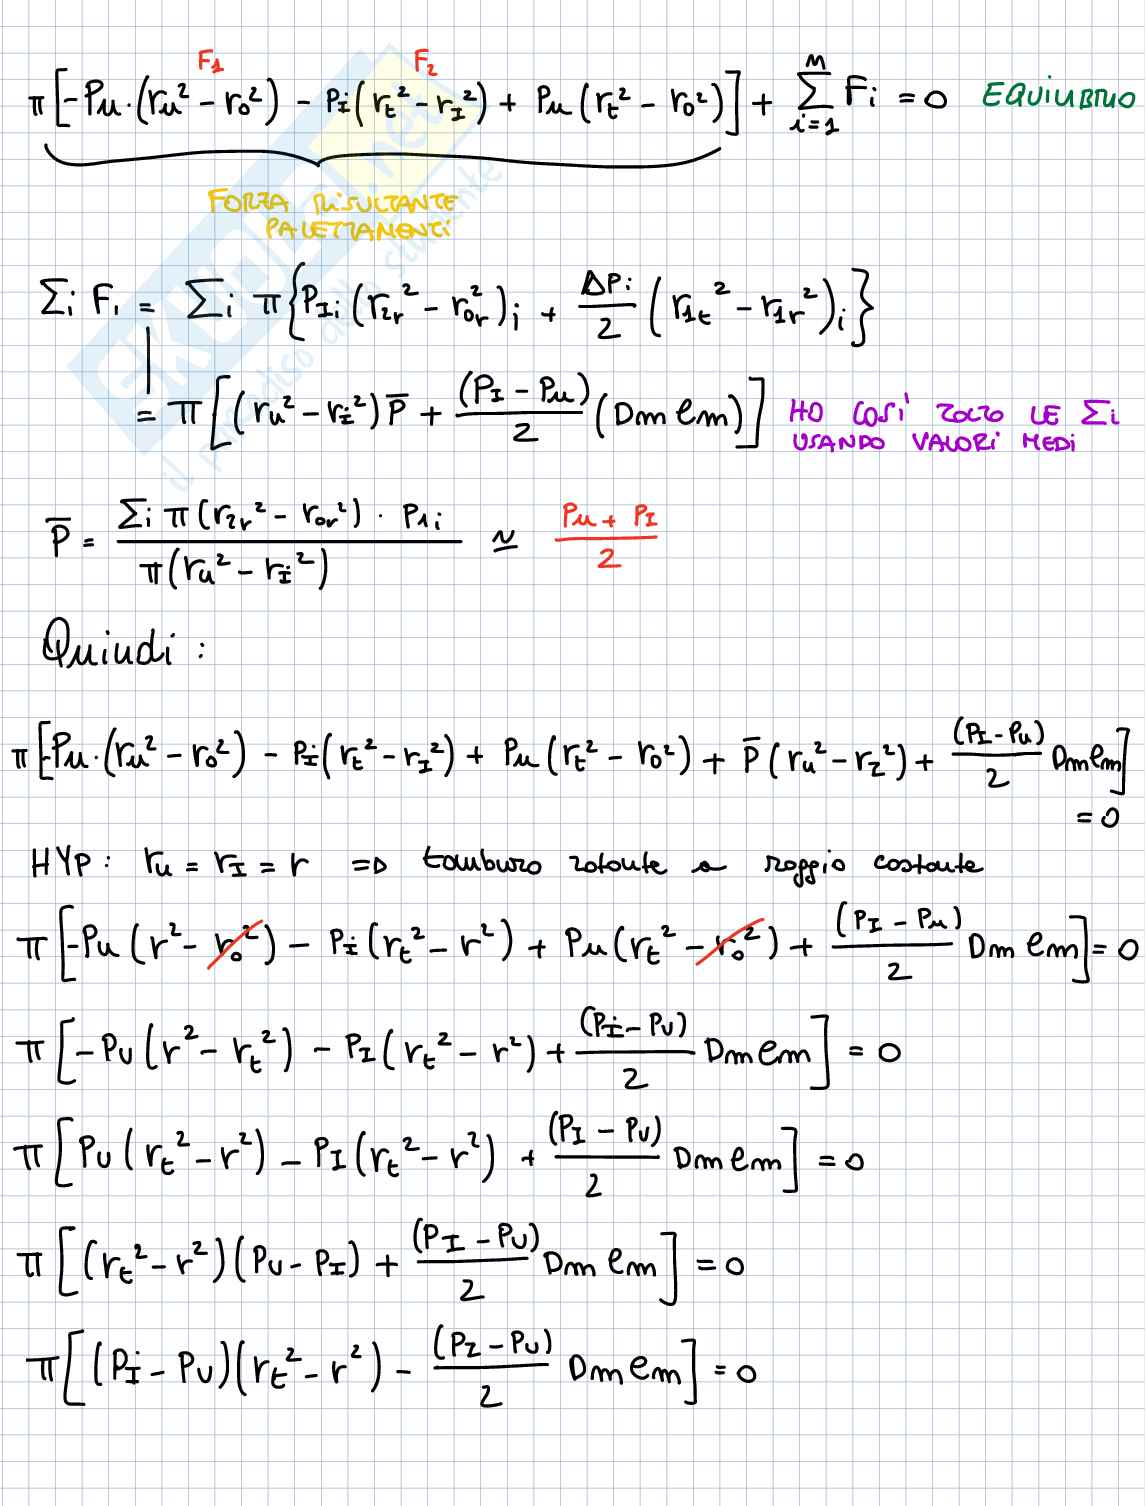 F1 F2
π [-Pu·(ru² - r0²) - PI(rt² - rI²) + Pu(rt² - r0²)] + Σ_{i=1}^{M} Fi = 0 EQUILIBRIO
FORZA RISULTANTE
PALETTAMENTI
Σi Fi = Σi π{PIi(r2r² - r0r²)i + ΔPi/2 (r1t² - r1r²)i}
= π[(ru² - rI²)P̄ + (PI - Pu)/2 (Dm em)] HO COSÌ TOLTO LE Σi
USANDO VALORI MEDI
P̄ = Σi π(r2r² - r0r²) · P1i / π(ru² - rI²) ≃ Pu + PI / 2
Quindi :
π[-Pu·(ru² - r0²) - PI(rt² - rI²) + Pu(rt² - r0²) + P̄(ru² - rI²) + (PI - Pu)/2 Dm em]
= 0
HYP : ru = rI = r => tamburo rotante a raggio costante
π[-Pu(r² - r0²) - PI(rt² - r²) + Pu(rt² - r0²) + (PI - Pu)/2 Dm em] = 0
π[-PU(r² - rt²) - PI(rt² - r²) + (PI - PU)/2 Dm em] = 0
π[PU(rt² - r²) - PI(rt² - r²) + (PI - PU)/2 Dm em] = 0
π[(rt² - r²)(PU - PI) + (PI - PU)/2 Dm em] = 0
π[(PI - PU)(rt² - r²) - (PI - PU)/2 Dm em] = 0